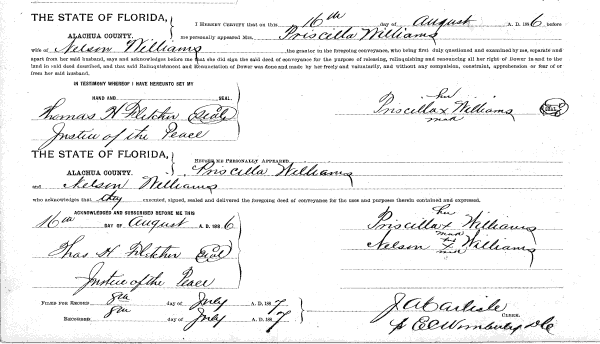 THE STATE OF FLORIDA, I HEREBY CERTIFY that on this 16th day of August A. D. 1886 before
ALACHUA COUNTY. me personally appeared Mrs. Priscilla Williams
wife of Nelson Williams the grantor in the foregoing conveyance, who being first duly questioned and examined by me, separate and
apart from her said husband, says and acknowledges before me that she did sign the said deed of conveyance for the purpose of releasing, relinquishing and renouncing all her right of Dower in and to the
land in said deed described, and that said Relinquishment and Renunciation of Dower was done and made by her freely and voluntarily, and without any compulsion, constraint, apprehension or fear of or
from her said husband.
IN TESTIMONY WHEREOF I HAVE HEREUNTO SET MY
HAND AND SEAL.
her
Thomas H Fletcher Seal
Priscilla x Williams
mark
Justice of the Peace
THE STATE OF FLORIDA,
ALACHUA COUNTY. BEFORE ME PERSONALLY APPEARED Priscilla Williams
and Nelson Williams
who acknowledges that they executed, signed, sealed and delivered the foregoing deed of conveyance for the uses and purposes therein contained and expressed.
ACKNOWLEDGED AND SUBSCRIBED BEFORE ME THIS
16th DAY OF August A. D. 1886
her
Priscilla x Williams
mark
his
Thos H Fletcher Seal
Nelson x Williams
mark
Justice of the Peace
FILED FOR RECORD 8th day of July A. D. 1887
J A Carlisle
CLERK.
RECORDED 8th day of July 1887
p E C Wimberly D C